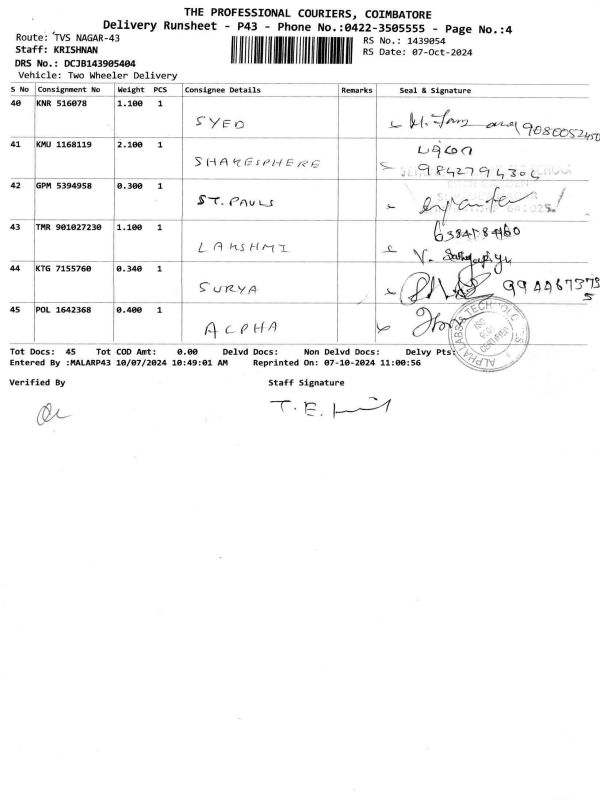 THE PROFESSIONAL COURIERS, COIMBATORE
Delivery Runsheet - P43 - Phone No.:0422-3505555 - Page No.:4
Route: TVS NAGAR-43
RS No.: 1439054
Staff: KRISHNAN
RS Date: 07-Oct-2024
DRS No.: DCJB143905404
Vehicle: Two Wheeler Delivery
S No Consignment No Weight PCS Consignee Details Remarks Seal & Signature
40 KNR 516078 1.100 1
SYED 9080052450
41 KMU 1168119 2.100 1
SHAKESPHERE 9842794304
42 GPM 5394958 0.300 1
ST. PAULS
43 TMR 901027230 1.100 1
LAKSHMI
44 KTG 7155760 0.340 1
SURYA
45 POL 1642368 0.400 1
ALPHA
Tot Docs: 45 Tot COD Amt: 0.00 Delvd Docs: Non Delvd Docs: Delvy Pts:
Entered By :MALARP43 10/07/2024 10:49:01 AM Reprinted On: 07-10-2024 11:00:56
Verified By Staff Signature